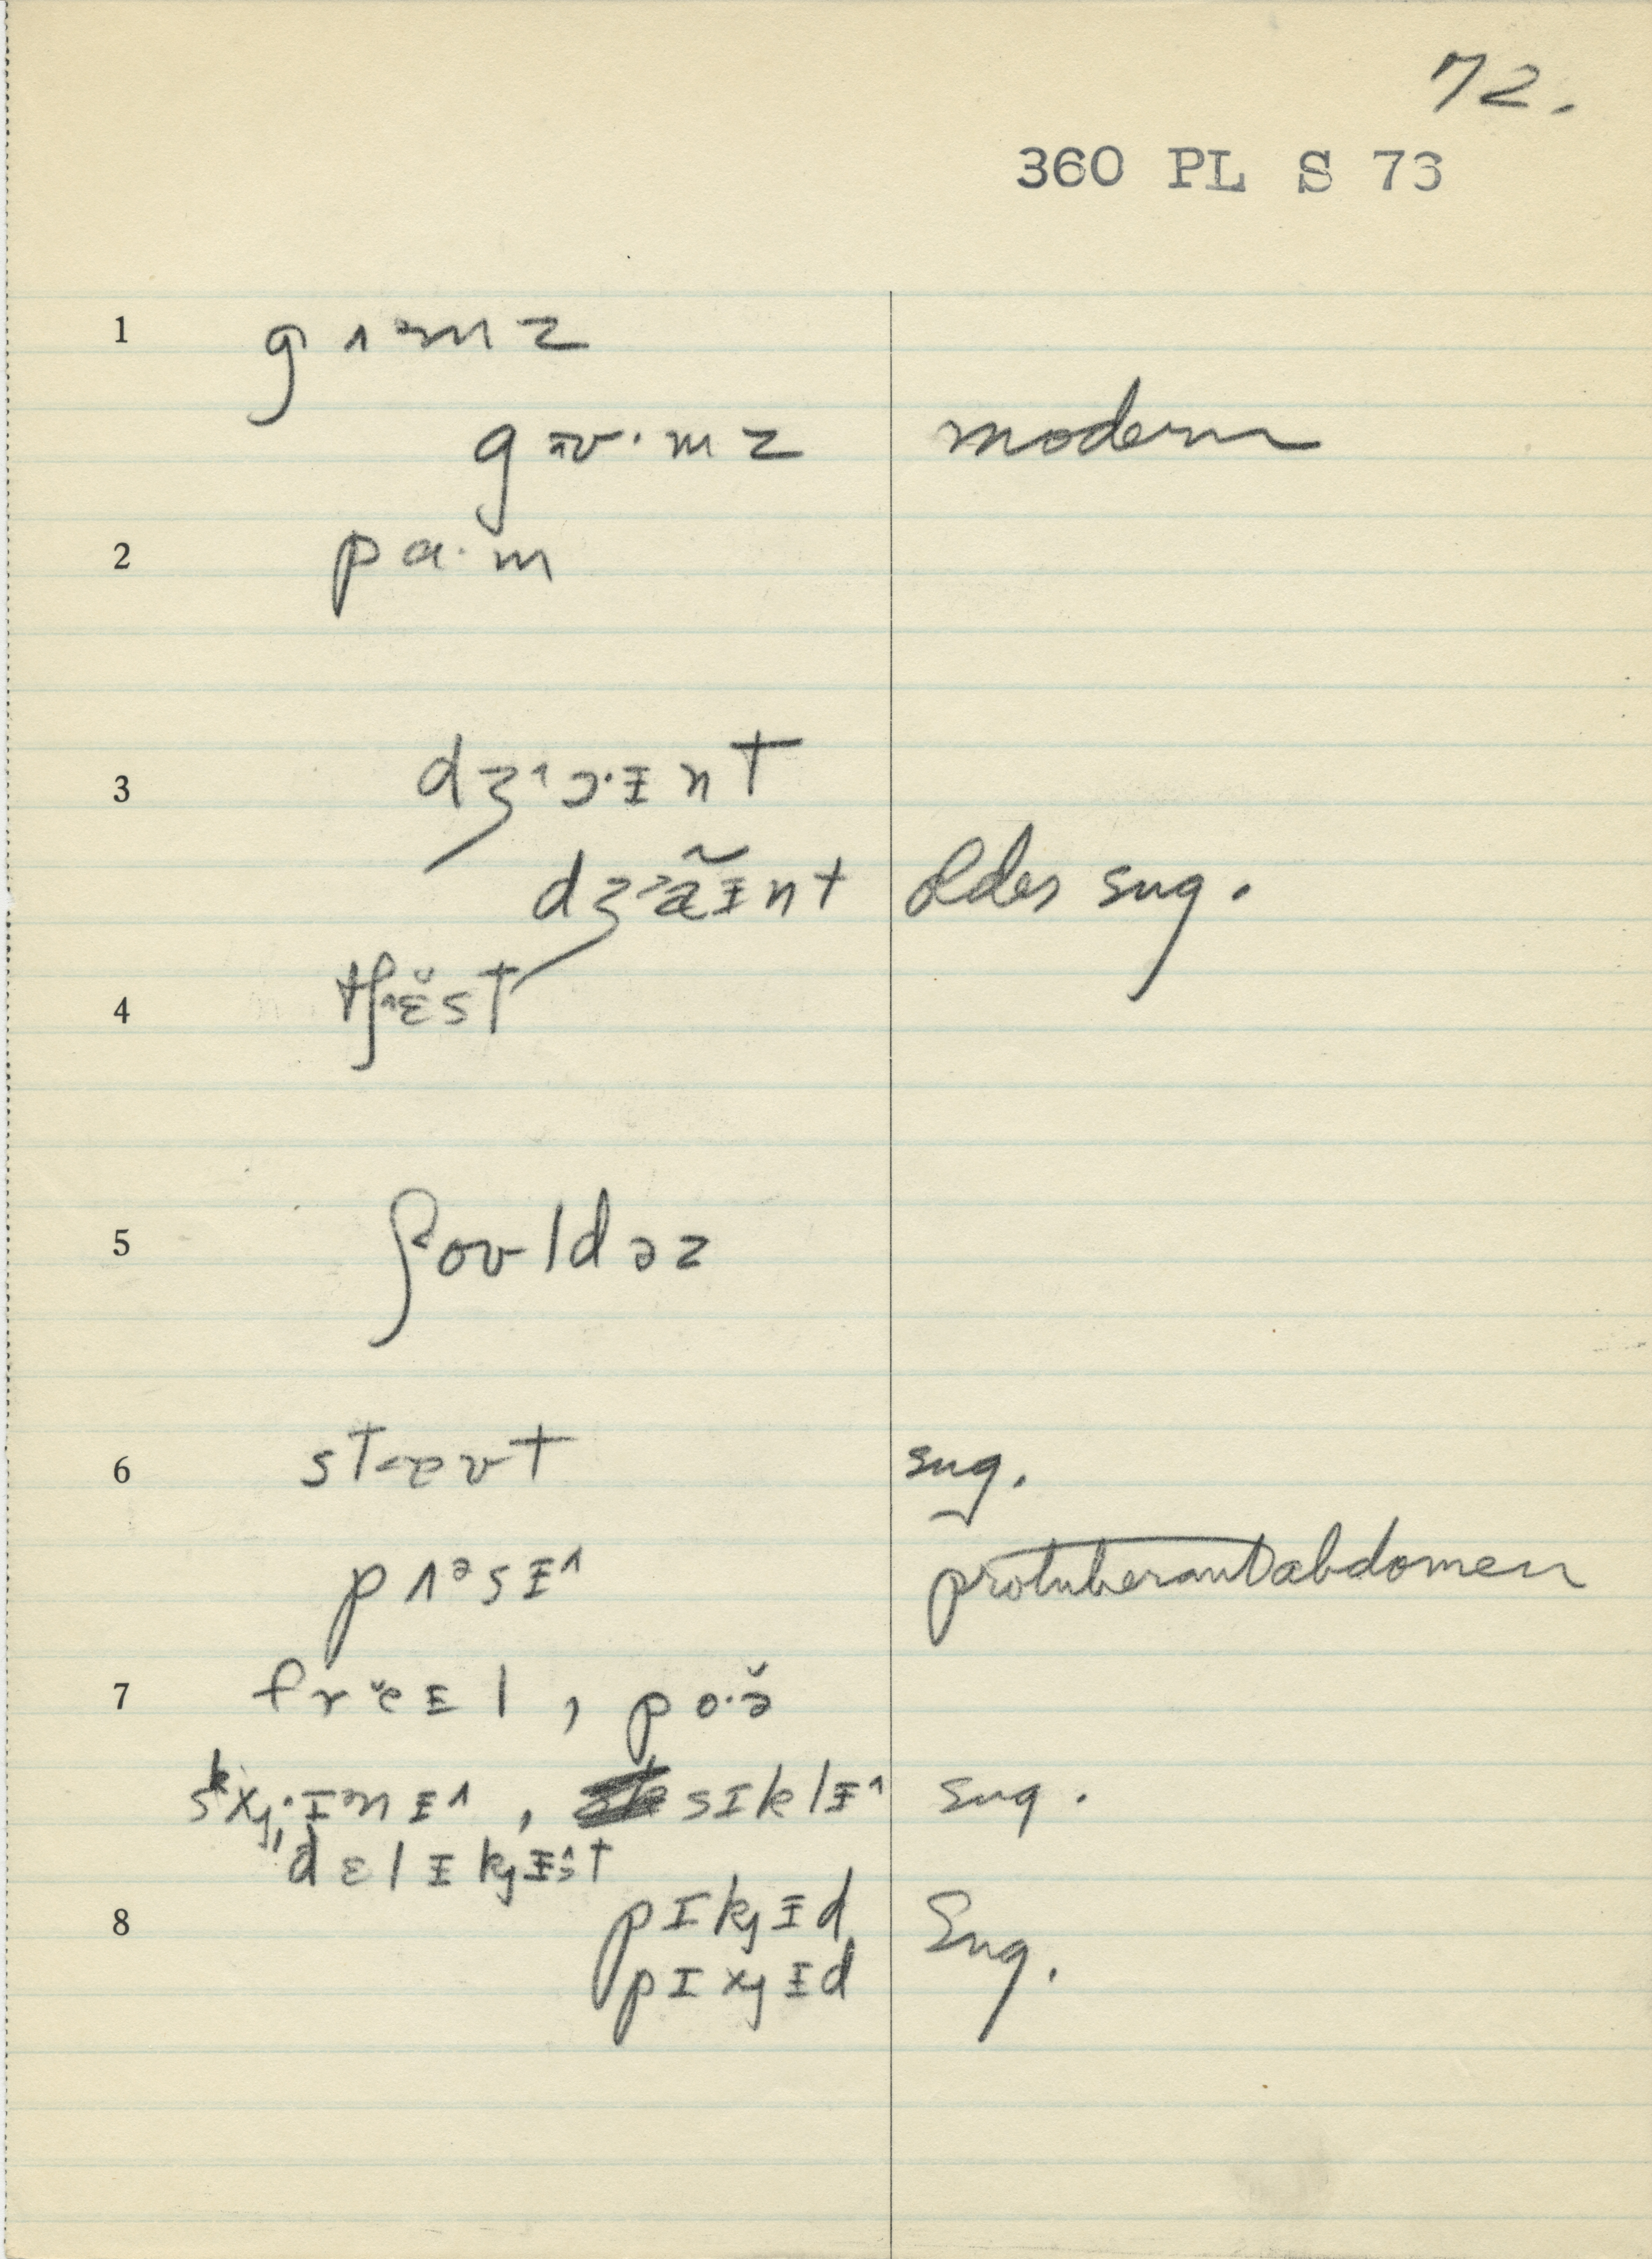 72.
360 PL S 73
1 gɜ˞mz
gɜʊ·mz modern
2 pɑ·m
3 dʒ˄ɔ·ɪ̵nt
dʒ˃æ̃ɪ̵nt older sug.
4 tʃ˄ɛ̆st
5 ʃ˂oʊldəz
6 st˂eʊt sug.
pʌᵊsɪ̵˄ protuberant abdomen
7 frĕɪ̵l, po·ə̆
skxj·ɪᵊnɪ̵˄, sɪklɪ̵˄ sug.
"dɛlɪ̵kjɪ̵˄st
8 pɪkjɪ̵d Sug.
pɪxjɪ̵d